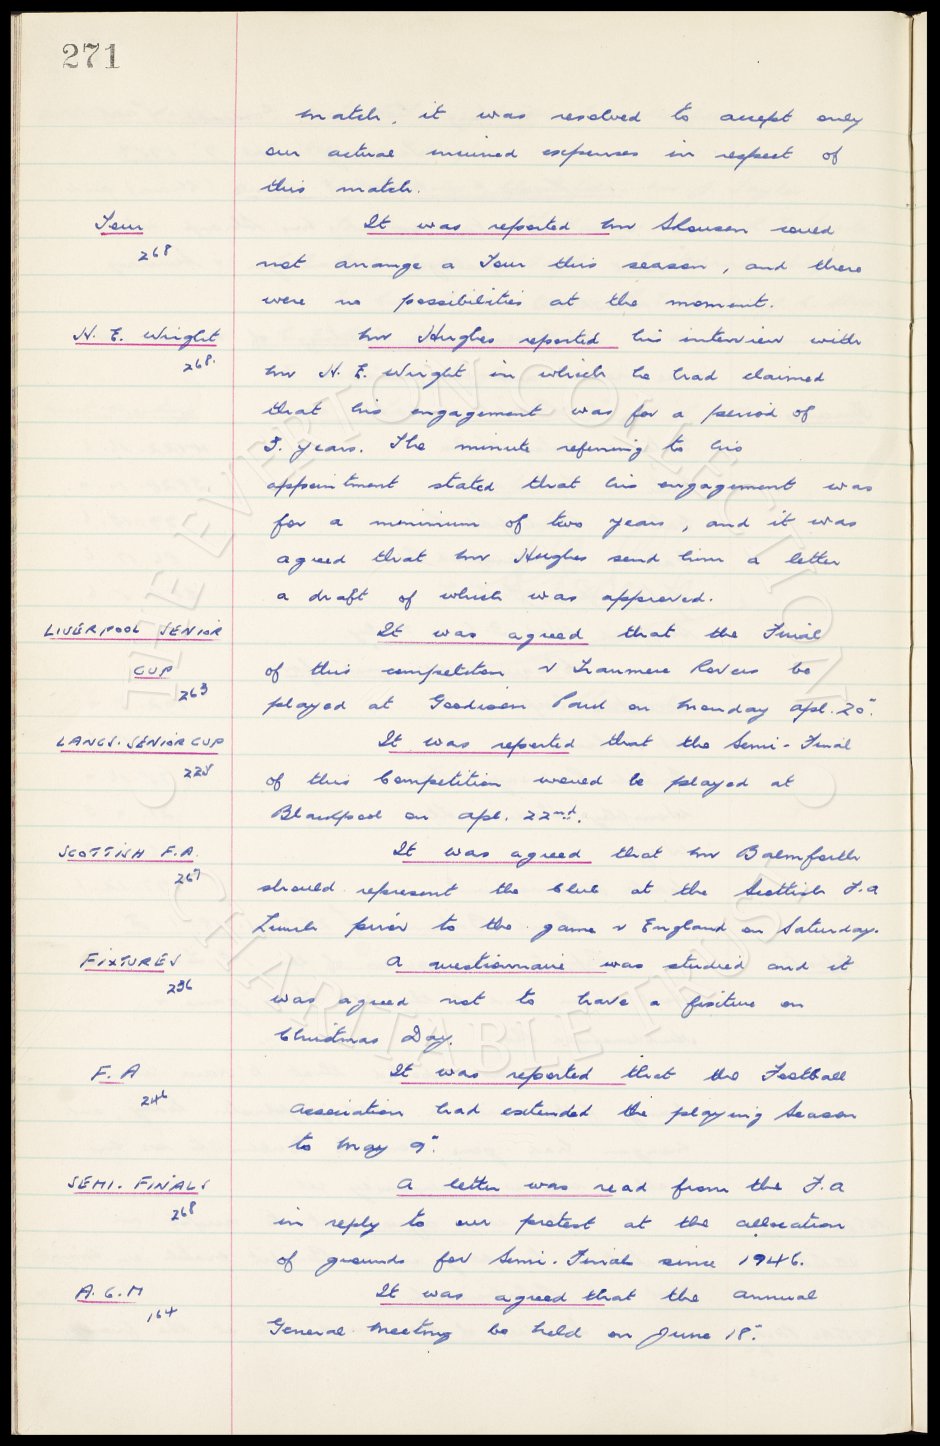 271
match, it was resolved to accept only
our actual incurred expenses in respect of
this match.
Tour
268
It was reported Mr Sharwen could
not arrange a Tour this season, and there
were no possibilities at the moment.
H. E. Wright
268.
Mr Hughes reported his interview with
Mr H. E. Wright in which he had claimed
that his engagement was for a period of
5. years. The minute referring to his
appointment stated that his engagement was
for a minimum of two years, and it was
agreed that Mr Hughes send him a letter
a draft of which was approved.
LIVERPOOL SENIOR
CUP
263
It was agreed that the Final
of this competition v Tranmere Rovers be
played at Goodison Park on Monday Apl. 20".
LANCS. SENIOR CUP
225
It was reported that the Semi-Final
of this Competition would be played at
Blackpool on Apl. 22nd.
SCOTTISH F.A.
267
It was agreed that Mr Balmforth
should represent the Club at the Scottish F.A
Lunch prior to the game v England on Saturday.
FIXTURES
236
A questionnaire was studied and it
was agreed not to have a fixture on
Christmas Day.
F. A
246
It was reported that the Football
Association had extended the playing Season
to May 9".
SEMI. FINALS
268
A letter was read from the F.A
in reply to our protest at the allocation
of grounds for Semi-Finals since 1946.
A. G. M
164
It was agreed that the Annual
General Meeting be held on June 18".
THE EVERTON COLLECTION
CHARITABLE TRUST